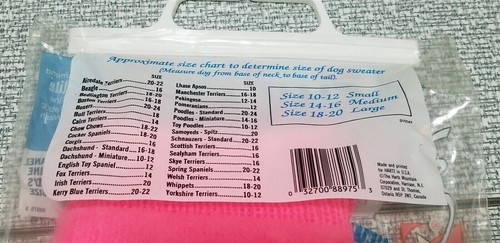 Approximate size chart to determine size of dog sweater
(Measure dog from base of neck to base of tail).
SIZE
Airedale Terriers 20-22
Beagle 16
Bedlington Terriers 18-20
Boston Terriers 16-18
Boxers
Bull Terriers 18
Cairn Terriers 14
Chow Chows 18-22
Cocker Spaniels 18-20
Corgis
Dachshund - Standard 16-18
Dachshund - Miniature 10-12
English Toy Spaniel 12
Fox Terriers 14
Irish Terriers 20
Kerry Blue Terriers 20-22
SIZE
Lhasa Apson 10
Manchester Terriers 16-18
Pekingese 12-14
Pomeranians 12
Poodles - Standard 20-24
Poodles - Miniature 14-16
Toy Poodles 10-12
Samoyeds - Spitz 20
Schnauzers - Standard 20-22
Scottish Terriers 16
Sealyham Terriers 16
Skye Terriers 16
Spring Spaniels 20-22
Welsh Terriers 14
Whippets 18-20
Yorkshire Terriers 10-12
Size 10-12 Small
Size 14-16 Medium
Size 18-20 Large
0 32700 88975 3
Made and printed
for HARTZ in U.S.A.
©The Hartz Mountain
Corporation, Harrison, N.J.
07029 and St. Thomas,
Ontario N5P 3W1, Canada